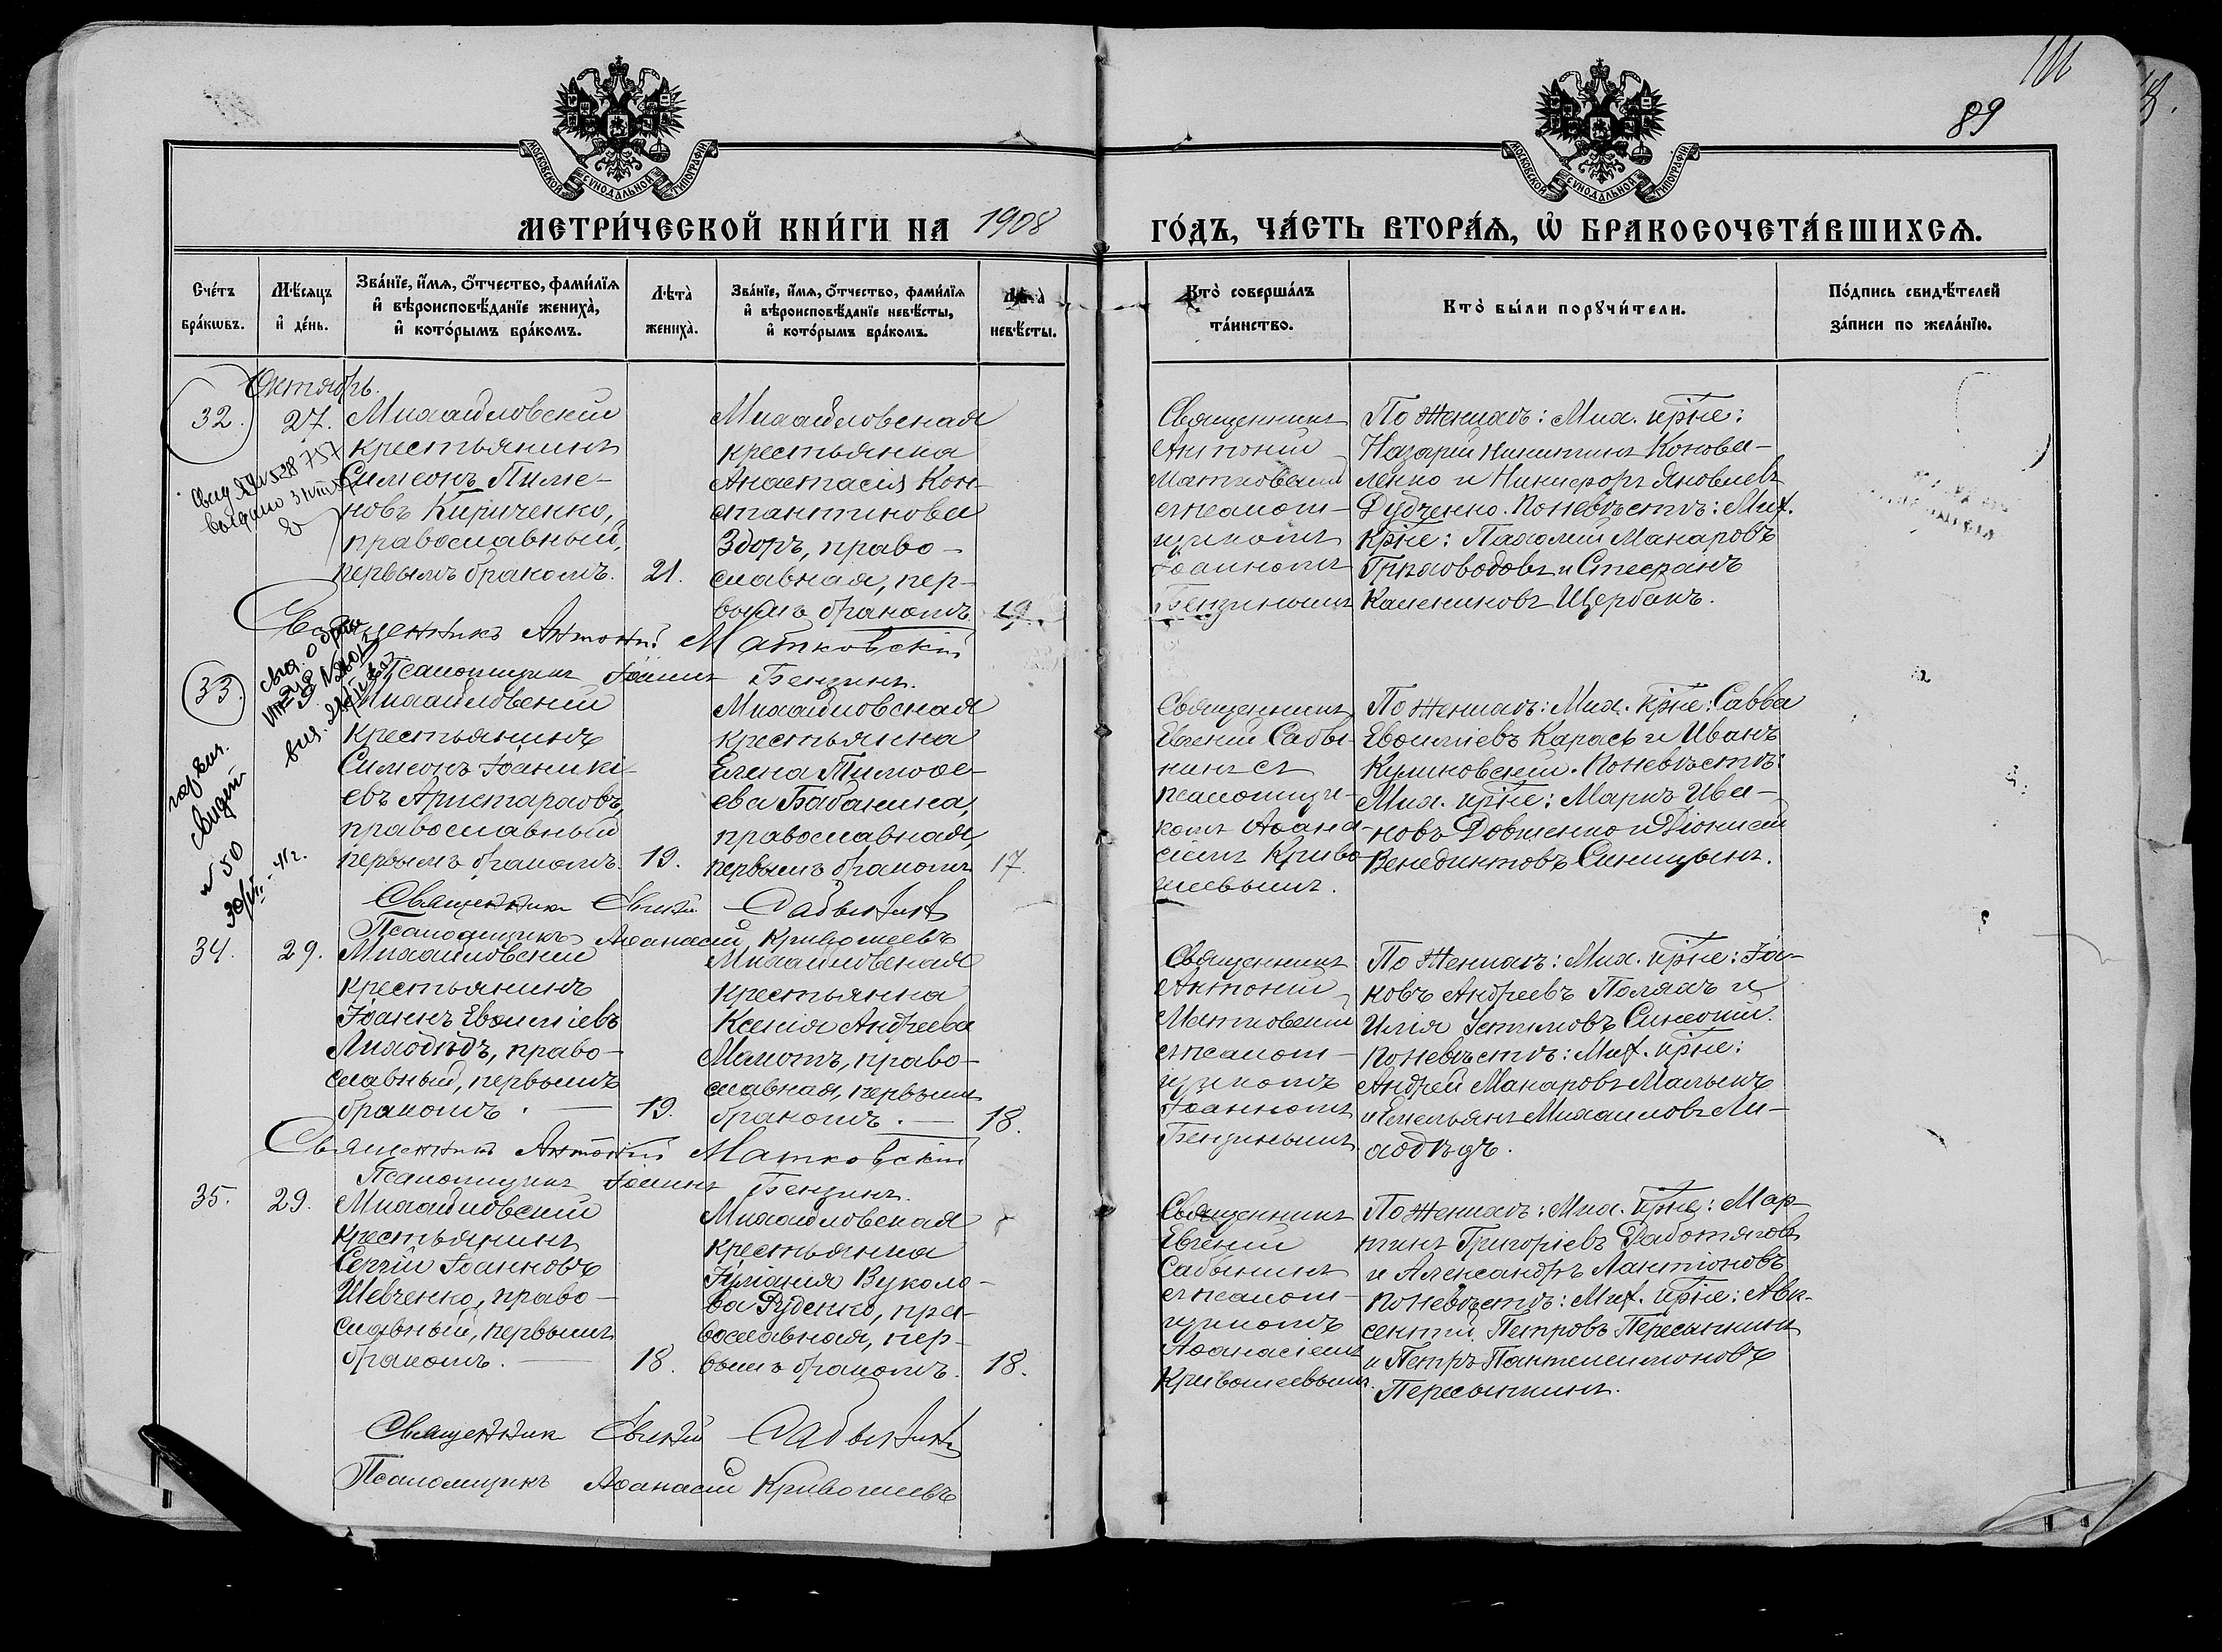 89
МОСКОВСКОЙ СУНОДАЛЬНОЙ ТИПОГРАФІИ
МОСКОВСКОЙ СУНОДАЛЬНОЙ ТИПОГРАФІИ
МЕТРИ́ЧЕСКОЙ КНИ́ГИ НА 1908 ГО́ДЪ, ЧА́СТЬ ВТОРА́Ѧ, Ѽ БРАКОСОЧЕТА́ВШИХСѦ.
Сче́тъ бра́кѡвъ.
Мѣ́сѧцъ и҆ де́нь.
Зва́нїе, и҆́мѧ, ѻ҆́тчество, фами́лїѧ и҆ вѣроисповѣ́данїе жениха̀, и҆ кото́рымъ бра́комъ.
Лѣта̀ жениха̀.
Зва́нїе, и҆́мѧ, ѻ҆́тчество, фами́лїѧ и҆ вѣроисповѣ́данїе невѣ́сты, и҆ кото́рымъ бра́комъ.
Лѣта̀ невѣ́сты.
Кто̀ соверша́лъ та́инство.
Кто̀ бы́ли порꙋчи́тели.
По́дпись свидѣ́телей за́писи по жела́нїю.
Октябрь.
32.
27.
Михайловскій
крестьянинъ
Симеонъ Пиме-
новъ Кириченко,
православный,
первымъ бракомъ.
21.
Михайловская
крестьянка
Анастасія Кон-
стантинова
Здоръ, право-
славная, пер-
вымъ бракомъ.
19.
Священникъ
Антоній
Матковскій
съ псалом-
щикомъ
Іоанномъ
Бензинымъ
По женихѣ: Мих. кр̅не:
Назарій Никитинъ Конова-
ленко и Никифоръ Яковлевъ
Дудченко. По невѣстѣ: Мих.
кр̅не: Пахомій Макаровъ
и Стефанъ
Калениковъ Щербакъ.
Священникъ Антоній Матковскій
Псаломщикъ Іоаннъ Бензинъ.
33.
Михайловскій
крестьянинъ
Симеонъ Іоаникі-
евъ Аристарховъ,
православный
первымъ бракомъ.
19.
Михайловская
крестьянка
Елена Тимоѳе-
ева Бабанина,
православная,
первымъ бракомъ
17.
Священникъ
Евгеній Сабы-
нинъ съ
псаломщи-
комъ Аѳана-
сіемъ Криво-
шеевымъ.
По женихѣ: Мих. кр̅не: Савва
Евѳиміевъ Карась и Иванъ
Куликовскій. По невѣстѣ:
Мих. кр̅не: Маркъ Ива-
новъ Довженко и Діонисій
Венедиктовъ Синицынъ.
Священникъ Евгеній Сабынинъ
Псаломщикъ Аѳанасій Кривошеевъ
34.
29.
Михайловскій
крестьянинъ
Іоаннъ Евѳиміевъ
Лиходѣдъ, право-
славный, первымъ
бракомъ.
19.
Михайловская
крестьянка
Ксенія Андреева
право-
славная, первымъ
бракомъ.
18.
Священникъ
Антоній
Матковскій
съ псалом-
щикомъ
Іоанномъ
Бензинымъ
По женихѣ: Мих. кр̅не: Іа-
ковъ Андреевъ Поляхъ и
Илія Устимовъ
По невѣстѣ: Мих. кр̅не:
Андрей Макаровъ
и Емельянъ Михаиловъ Ли-
ходѣдъ.
Священникъ Антоній Матковскій
Псаломщикъ Іоаннъ Бензинъ.
35.
29.
Михайловскій
крестьянинъ
Сергій Іоанновъ
Шевченко, право-
славный, первымъ
бракомъ.
18.
Михайловская
крестьянка
Іуліанія Вуколо-
ва Руденко, пра-
вославная, пер-
вымъ бракомъ.
18.
Священникъ
Евгеній
Сабынинъ
съ псалом-
щикомъ
Аѳанасіемъ
Кривошеевымъ.
По женихѣ: Мих. кр̅не: Мар-
тинъ Григоріевъ Работяговъ
и Александръ Лактіоновъ
По невѣстѣ: Мих. кр̅не: Авк-
сентій Петровъ Пересыпкинъ
и Петръ Пантелеимоновъ
Пересыпкинъ.
Священникъ Евгеній Сабынинъ
Псаломщикъ Аѳанасій Кривошеевъ